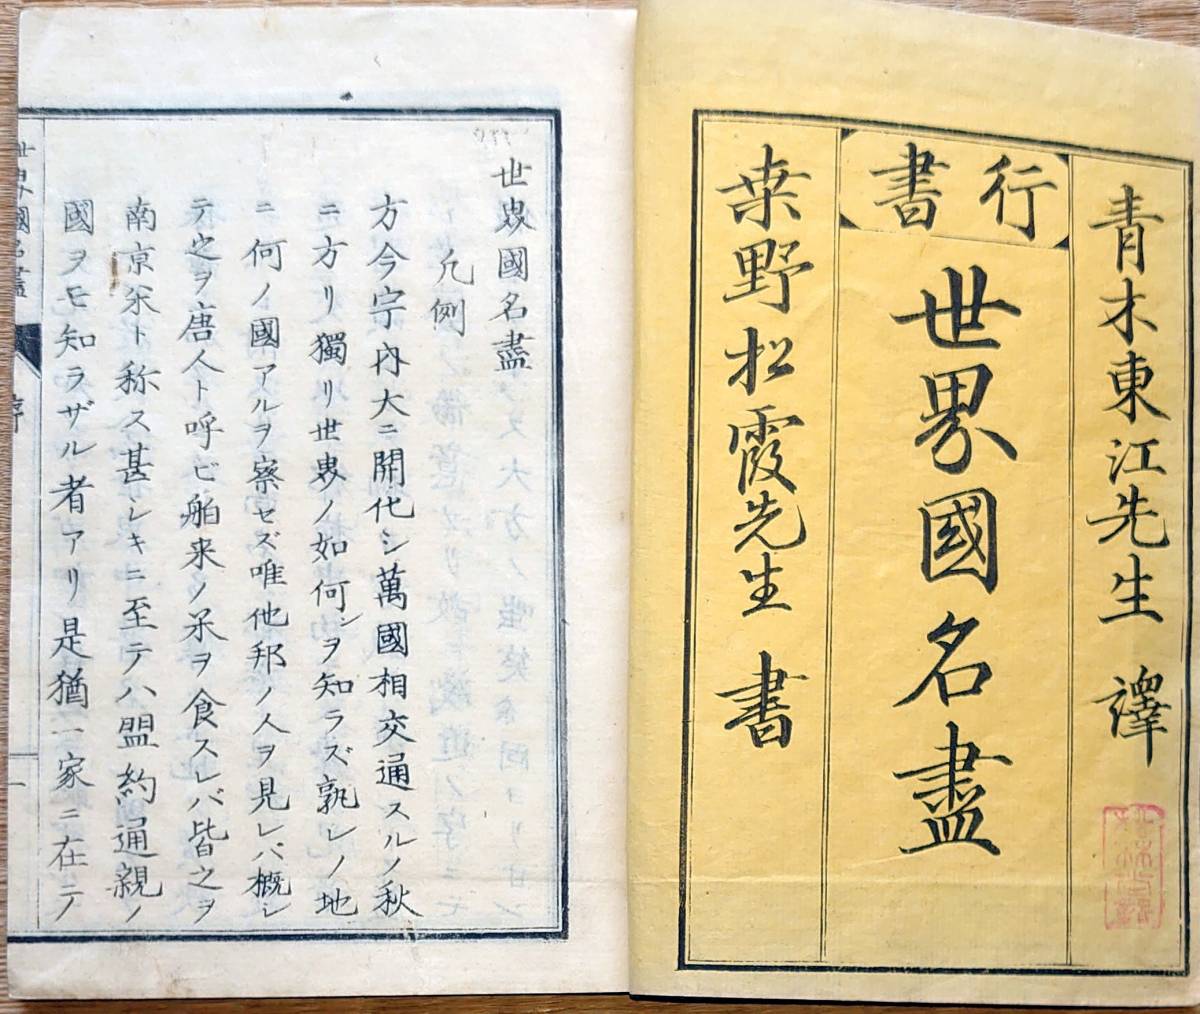 青木東江先生 譯
行書
世界國名盡
桒野松霞先生 書
世界國名盡
凡例
方今宇内大ニ開化シ萬國相交通スルノ秋
ニ方リ獨リ世界ノ如何ンヲ知ラズ孰レノ地
ニ何ノ國アルヲ察セズ唯他邦ノ人ヲ見レバ概シ
テ之ヲ唐人ト呼ビ舶来ノ米ヲ食スレバ皆之ヲ
南京米ト称ス甚シキニ至テハ盟約通親ノ
國ヲモ知ラザル者アリ是猶一家ニ在テ
世界國名盡
序
一